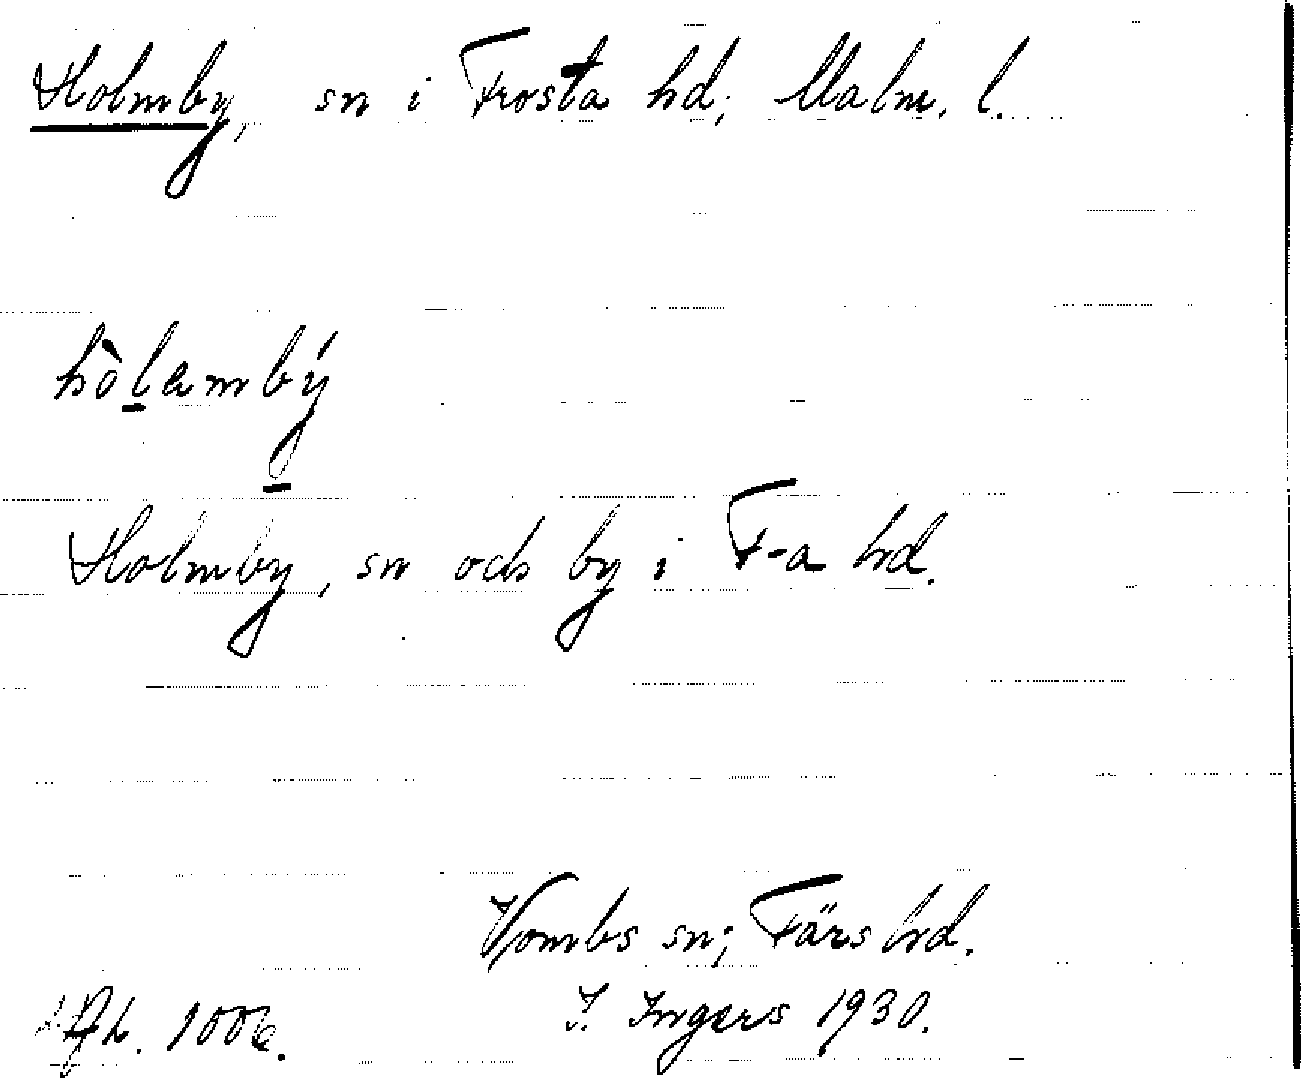 Holmby, sn i Frosta hd; Malm. l.
hòlambý
Holmby, sn och by i F-a hd.
Vombs sn; Färs hd.
I. Ingers 1930.